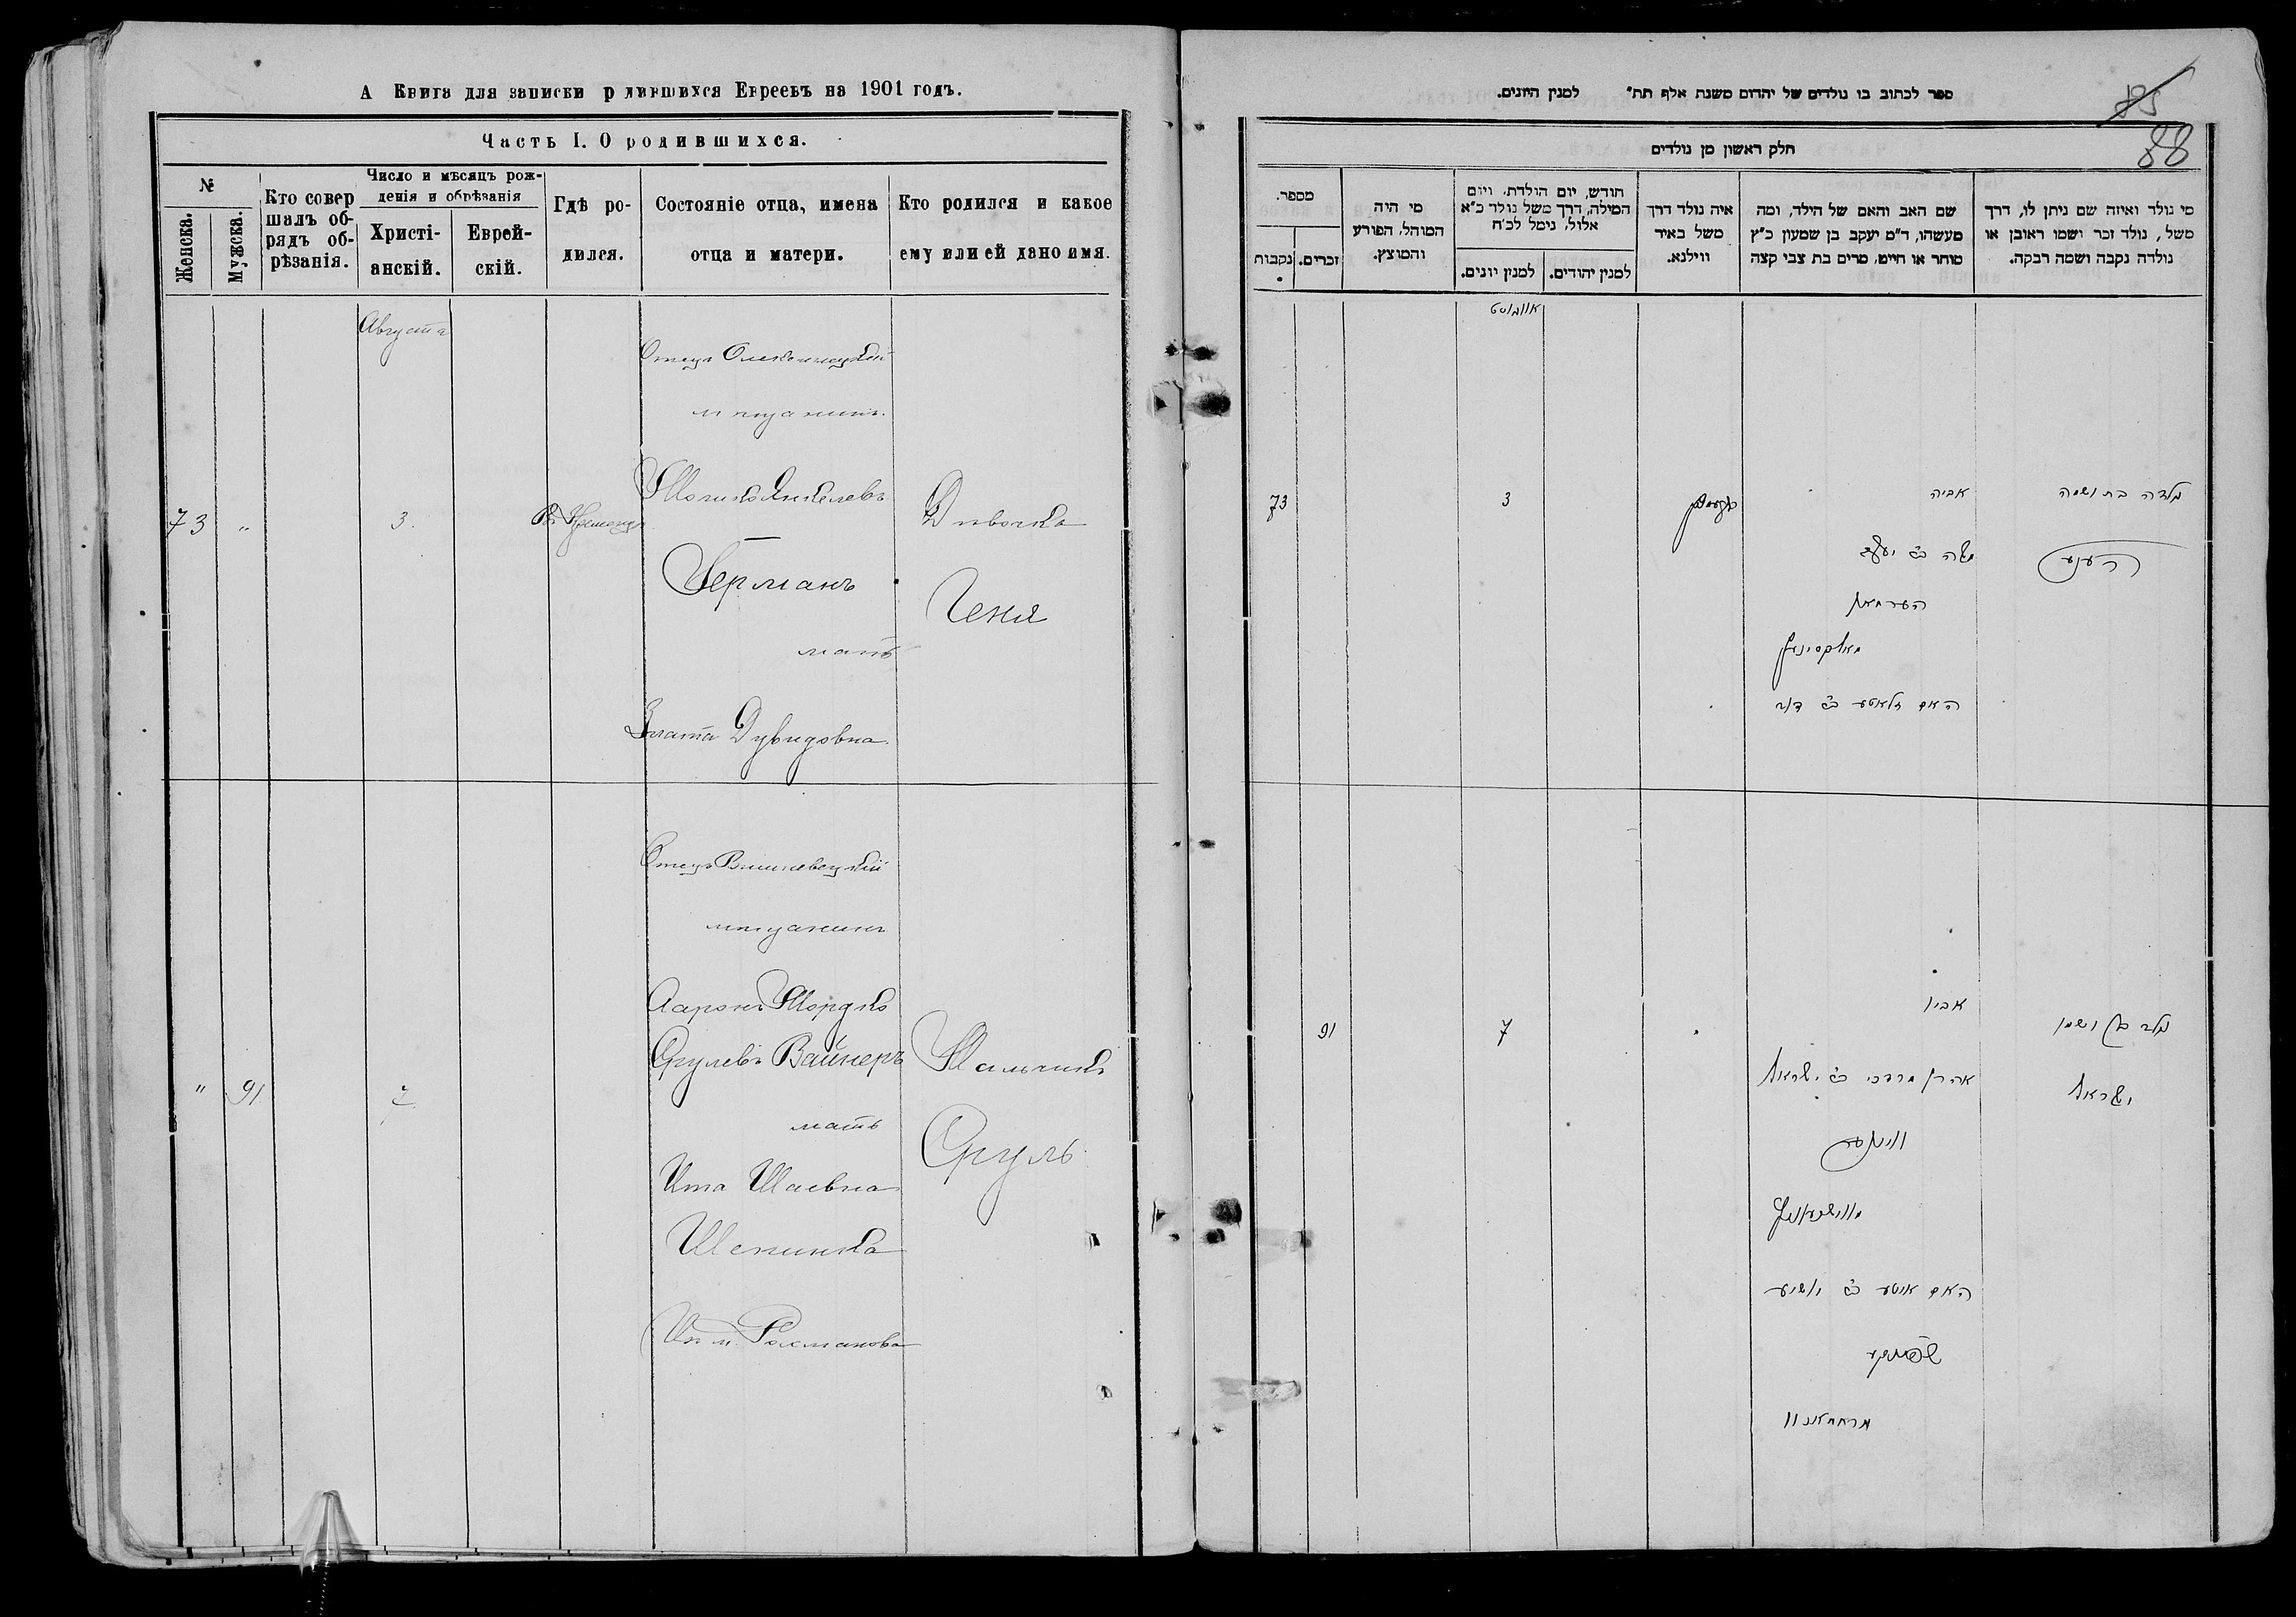 А Книга для записки р дившихся Евреевъ на 1901 годъ.
Часть I. О родившихся.
№
Женска.
Мужска.
Кто совер
шалъ об-
рядъ об-
рѣзанія.
Число и мѣсяцъ рож-
денія и обрѣзанія
Христі-
анскій.
Еврей-
скій.
Гдѣ ро-
дился.
Состояніе отца, имена
отца и матери.
Кто родился и какое
ему или ей дано имя.
Августа
73
"
3.
Отецъ
мѣщанинъ
Мошко Янкелевъ
Германъ
мать
Злата Дувидовна
Дивочка
Геня
"
91
7
Отецъ Вишневецкій
мѣщанинъ
Ааронъ Мордко
Срулевъ Вайнеръ
мать
Ита Шаевна
Шепинка
Из м. Рахманова
Мальчикъ
Сруль
85
88
ספר לכתוב בו נולדים של יהדום משנת אלף תת״ למנין היונים.
חלק ראשון מן נולדים
מספר.
נקבות
זכרים.
מי היה
המוהל, הפורע
והמוצץ.
חודש, יום הולדת, ויום
המילה, דרך משל נולד כ״א
אלול, נימל לכ״ח
למנין יונים.
למנין יהודים.
איה נולד דרך
משל באיר
ווילנא.
שם האב והאם של הילד, ומה
מעשהו, ד״מ יעקב בן שמעון כ״ץ
סוחר או חייט, מרים בת צבי קצה
מי נולד ואיזה שם ניתן לו, דרך
משל, נולד זכר ושמו ראובן או
נולדה נקבה ושמה רבקה.
אווגוסט
73
3
אביה
משה ב״ר יעקב
הערמאן
האם זלאטע ב״ר דוד
נולדה בת ושמה
הענע
91
7
אביו
אהרן מרדכי ב״ר ישראל
ווינער
האם איטע ב״ר יושיע
מרחמאנוו
נולד בן ושמו
ישראל